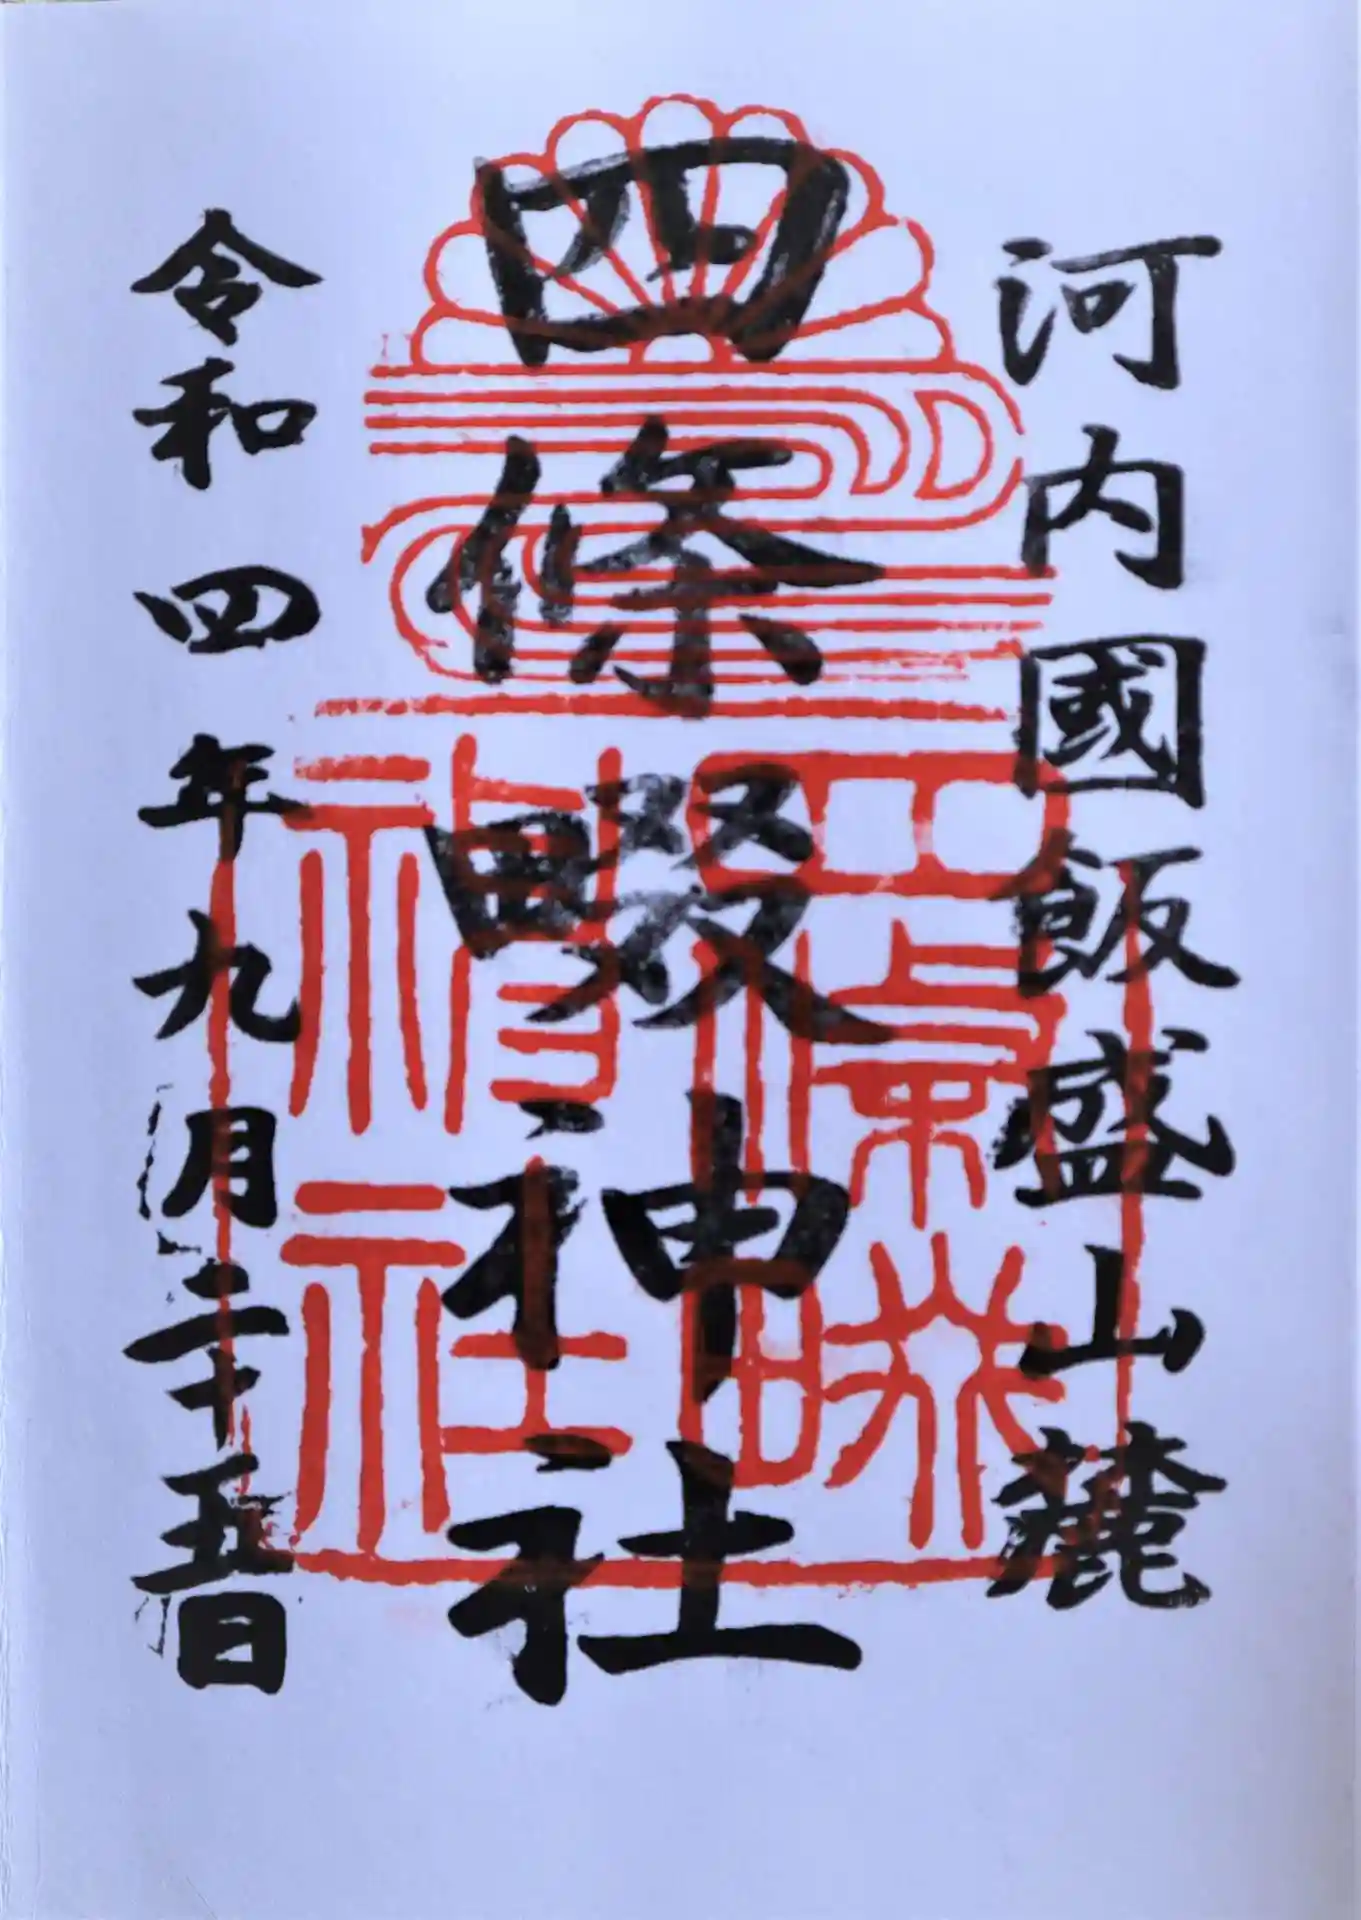 河内國飯盛山麓
四條畷神社
四條畷
神社
令和四年九月二十五日